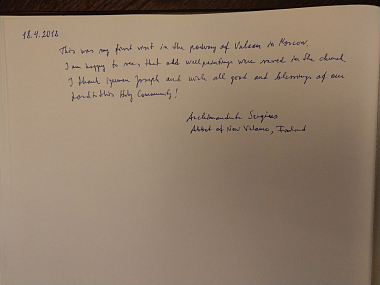 18.4.2018
This was my first visit in the podvorje of Valaam in Moscow.
I am happy to see, that old wallpaintings were saved in the church.
I thank igumen Joseph and wish all good and blessings of our
Lord to this Holy Community!
Archimandrite Sergius
Abbot of New Valamo, Finland